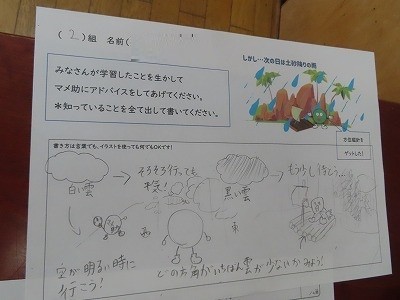 (2)組 名前(
しかし…次の日は土砂降りの雨
みなさんが学習したことを生かして
マメ助にアドバイスをしてあげてください。
＊知っていることを全て出して書いてください。
書き方は言葉でも、イラストを使っても何でもOKです！
方位磁針を
ゲットした！
白い雲
そろそろ行っても
黒い雲
もう少し待とう…
西
東
空が明るい時に
行こう！
どの方角がいちばん雲が少ないかみよう！